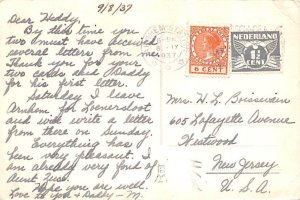 9/8/37
Dear Teddy,
By this time you
two must have received
several letters from me.
Thank you for your
two cards and Daddy
for his first letter.
Saturday I leave
Arnhem for Loenersloot
and will write a letter
from there on Sunday.
Everything has
been very pleasant. I
am already very fond of
Aunt
Hope you are well.
Love to you & Daddy - M.
6 CENT
1 CENT
Mrs. W. L. Boissevain
605 Lafayette Avenue
Westwood
New Jersey
U.S.A.